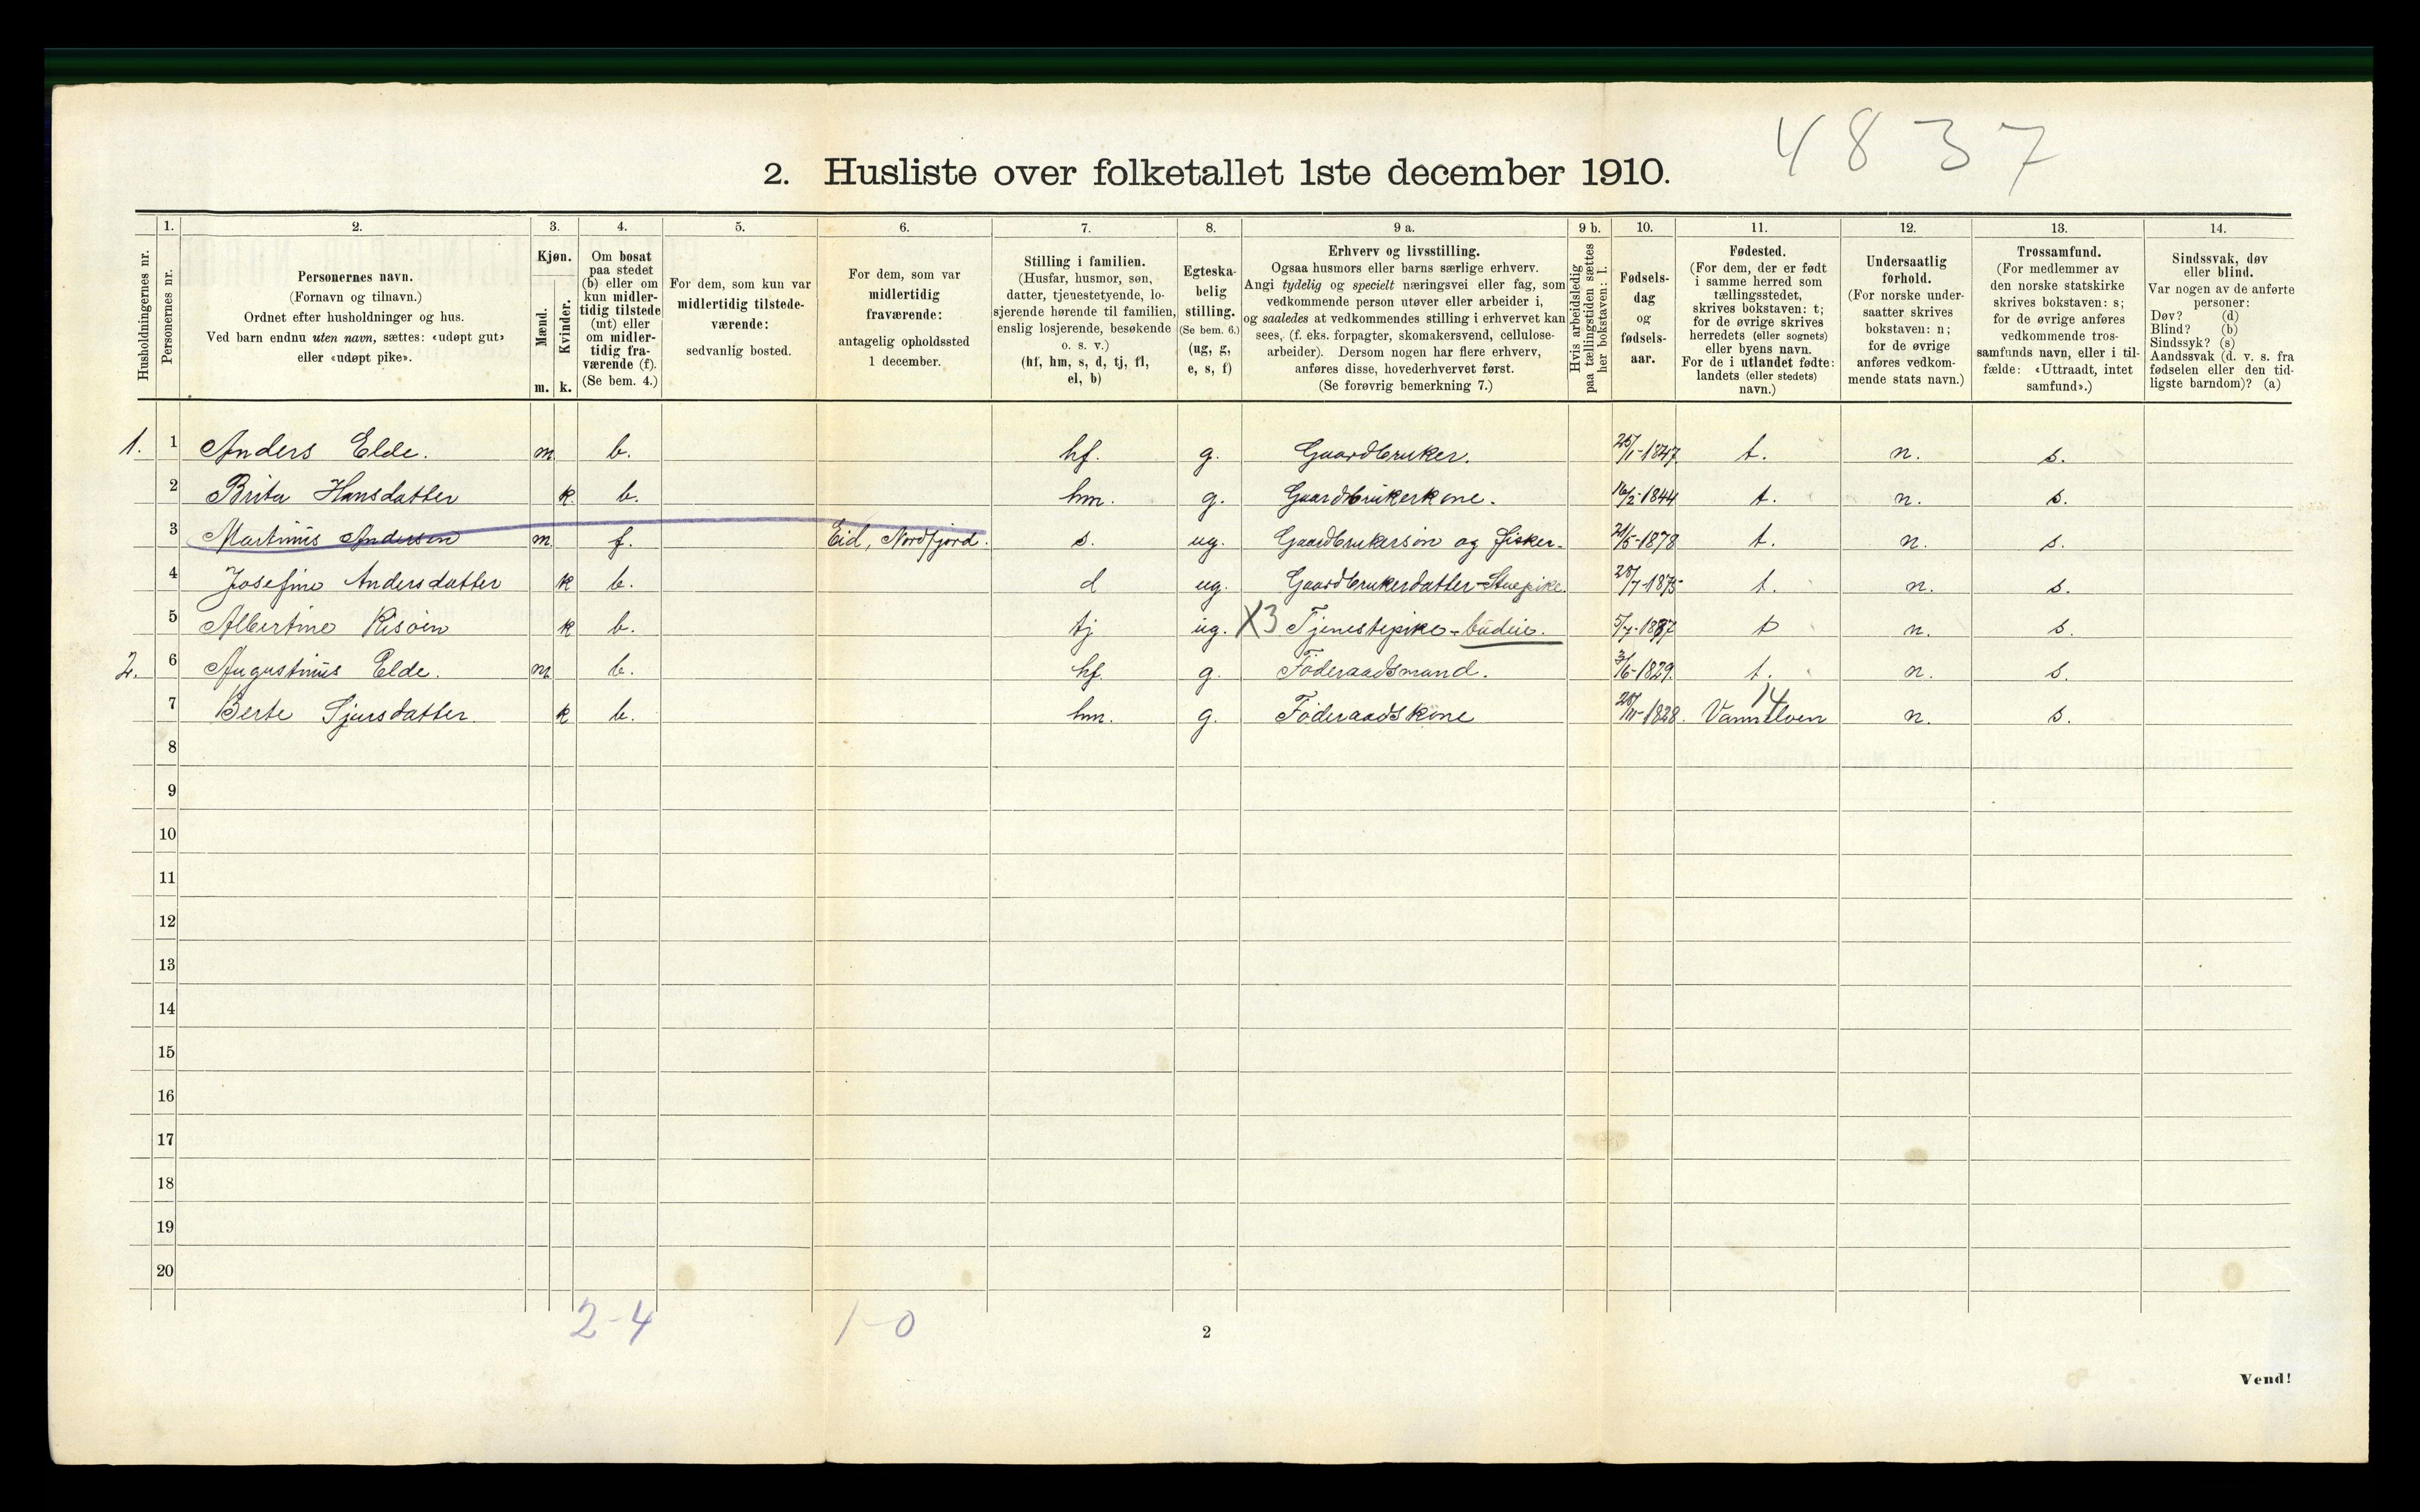 4837
2. Husliste over folketallet 1ste december 1910.
Husholdningernes nr.
1. Personernes nr.
2. Personernes navn. (Fornavn og tilnavn.) Ordnet efter husholdninger og hus. Ved barn endnu uten navn, sættes: «udøpt gut» eller «udøpt pike».
3. Kjøn. Mænd. m. Kvinder. k.
4. Om bosat paa stedet (b) eller om kun midlertidig tilstede (mt) eller om midlertidig fraværende (f). (Se bem. 4.)
5. For dem, som kun var midlertidig tilstedeværende: sedvanlig bosted.
6. For dem, som var midlertidig fraværende: antagelig opholdssted 1 december.
7. Stilling i familien. (Husfar, husmor, søn, datter, tjenestetyende, losjerende hørende til familien, enslig losjerende, besøkende o. s. v.) (hf, hm, s, d, tj, fl, el, b)
8. Egteskabelig stilling. (Se bem. 6.) (ug, g, e, s, f)
9 a. Erhverv og livsstilling. Ogsaa husmors eller barns særlige erhverv. Angi tydelig og specielt næringsvei eller fag, som vedkommende person utøver eller arbeider i, og saaledes at vedkommendes stilling i erhvervet kan sees, (f. eks. forpagter, skomakersvend, cellulosearbeider). Dersom nogen har flere erhverv, anføres disse, hovederhvervet først. (Se forøvrig bemerkning 7.)
9 b. Hvis arbeidsledig paa tællingstiden sættes her bokstaven: l.
10. Fødselsdag og fødselsaar.
11. Fødested. (For dem, der er født i samme herred som tællingsstedet, skrives bokstaven: t; for de øvrige skrives herredets (eller sognets) eller byens navn. For de i utlandet fødte: landets (eller stedets) navn.)
12. Undersaatlig forhold. (For norske undersaatter skrives bokstaven: n; for de øvrige anføres vedkommende stats navn.)
13. Trossamfund. (For medlemmer av den norske statskirke skrives bokstaven: s; for de øvrige anføres vedkommende trossamfunds navn, eller i tilfælde: «Uttraadt, intet samfund».)
14. Sindssvak, døv eller blind. Var nogen av de anførte personer: Døv? (d) Blind? (b) Sindssyk? (s) Aandssvak (d. v. s. fra fødselen eller den tidligste barndom)? (a)
1. 1 Anders Elde. m b. hf. g. Gaardbruker. 25/1-1847 t. n. s.
2 Brita Hansdatter k b. hm. g. Gaardbrukerkone. 16/2-1844 t. n. s.
3 Martinus Andersen m f. Eid, Nordfjord. s. ug. Gaardbrukersøn og fisker. 21/5-1878 t. n. s.
4 Josefine Andersdatter k b. d ug. Gaardbrukerdatter-Stuepike. 28/7-1875 t. n. s.
5 Albertine Risøen k b. tj ug. X3 Tjenestepike-budeie. 5/7-1887 t n. s.
2. 6 Augustinus Elde. m b. hf. g. Føderaadsmand. 3/6-1829 t. n. s.
7 Berte Sjursdatter. k b. hm. g. Føderaadskone 28/11-1828 14 Vannelven n. s.
8
9
10
11
12
13
14
15
16
17
18
19
20
2-4 1-0
2
Vend!